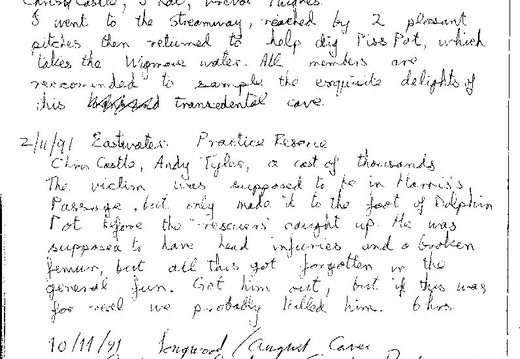 Chris Castle, J Rat, Trevor Hughes
I went to the streamway, reached by 2 pleasant
pitches then returned to help dig Piss Pot, which
takes the Wigmore water. All members are
reccomended to sample the exquisite delights of
this transcedental cave.
2/11/91 Eastwater. Practice Rescue
Chris Castle, Andy Tyler, a cast of thousands
The victim was supposed to be in Harris's
Passage, but only made it to the foot of Dolphin
Pot before the "rescuers" caught up. He was
supposed to have head injuries and a broken
femur, but all this got forgotten in the
general fun. Got him out, but if this was
for real we probably killed him. 6 hrs
10/11/91 Longwood / August Cave